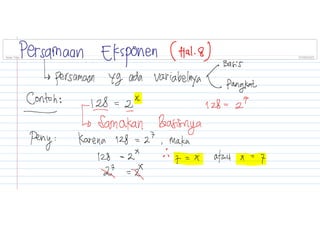 Persamaan Eksponen (Hal. 8)
↳ Persamaan yg ada variabelnya < Basis
Pangkat
Contoh: 128 = 2^x 128 = 2^7
↳ Samakan Basisnya
Peny: Karena 128 = 2^7, maka
128 = 2^x ∴ 7 = x atau x = 7
2^7 = 2^x